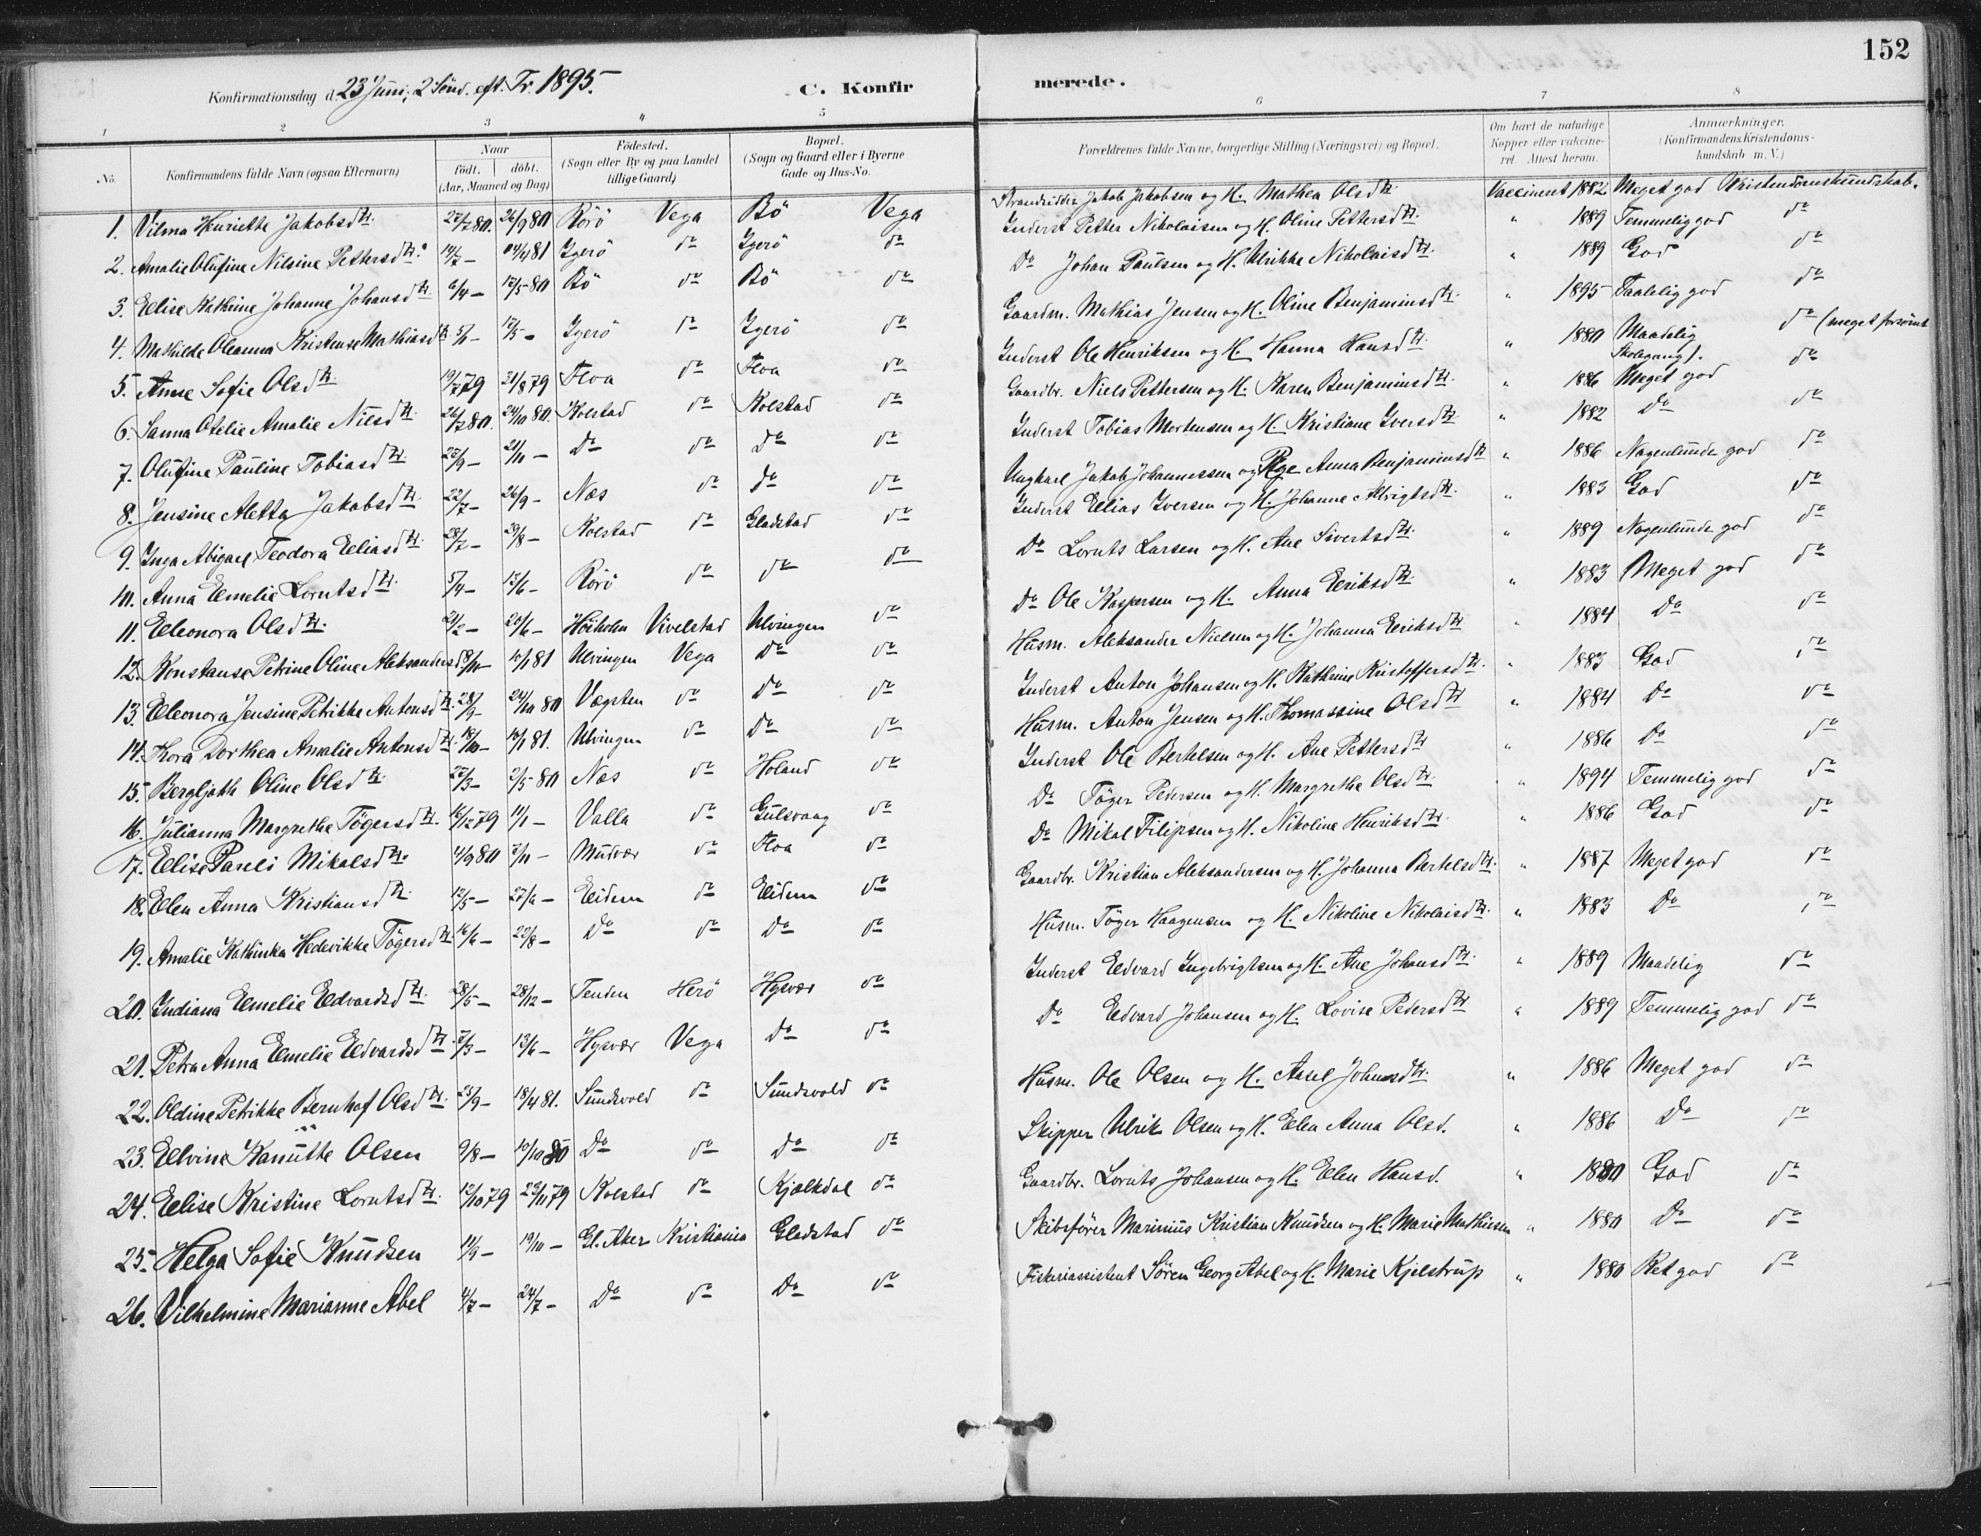 152
Konfirmationsdag d. 23 Juni, 2 Sönd. eft. Tr. 1895. C. Konfirmerede.
1 2 3 4 5 6 7 8
No. Konfirmandens fulde Navn (ogsaa Efternavn) Naar født. døbt. (Aar, Maaned og Dag) Fødested. (Sogn eller By og paa Landet tillige Gaard) Bopæl. (Sogn og Gaard eller i Byerne Gade og Hus-No. Forældrenes fulde Navne, borgerlige Stilling (Næringsvei) og Bopæl. Om havt de naturlige Kopper eller vaccineret. Attest herom. Anmærkninger. (Konfirmandens Kristendomskundskab m. V.)
1. Vilma Henriette Jakobsdtr. 27/7 80. 26/9 80 Rörö Vega Bö Vega Strandsidder Jakob Jakobsen og H. Mathea Olsdtr. Vaccineret 1882 Meget god Kristendomskundskab.
2. Amalie Olufine Nilsine Pettersdtr. 14/7 - 04/4 81 Igerö do Igerö do Inderst Petter Nikolaisen og H. Oline Pettersdtr. " 1889 Temmelig god do
3. Elise Kathrine Johanne Johansdtr. 6/4 - 17/5 80 Bö do Bö do Do Johan Paulsen og H. Ulrikke Nikolaisdtr. " 1889 God do
4. Mathilde Oleanna Kristense Mathiasdtr. 5/1 - 17/5 - Igerö do Igerö do Gaardm. Mathias Jensen og H. Oline Benjaminsdtr. " 1895 Taalelig god do
5. Anne Sofie Olsdtr. 19/7 79 31/8 79 Floa do Floa do Inderst Ole Henriksen og H. Hanna Hansdtr. " 1880 Maadelig do (meget forsömt Skolegang).
6. Sanna Otelie Amalie Nilsdtr. 26/7 80. 24/10 80. Kolstad do Kolstad do Gaardbr. Niels Pettersen og H. Karen Benjaminsdtr. " 1886 Meget god do
7. Olufine Pauline Tobiasdtr. 23/9 - 21/11 - Do do Do do Inderst Tobias Mortensen og H. Kristiane Iversdtr. " 1882 Do do
8. Jensine Aletta Jakobsdtr. 22/7 - 26/9 - Næs do do do Ungkarl Jakob Johannessen og Pge Anna Benjaminsdtr. " 1886 Nogenlunde god do
9. Inga Abigael Teodora Eliasdtr. 28/7 - 29/8 - Kolstad do Gladstad do Inderst Elias Iversen og H. Johanne Albrigtsdtr. " 1883 God do
10. Anna Emelie Lorntsdtr. 5/4 - 13/6 - Rörö do do do Do Lornts Larsen og H. Ane Sivertsdtr. " 1889 Nogenlunde god do
11. Eleonora Olsdtr. 21/2 - 20/6 - Höiholm Vivelstad Ulvingen do Do Ole Kaspersen og H. Anna Eriksdtr. " 1883 Meget god do
12. Konstanse Petrine Oline Aleksandersd 8/11 - 10/1 81 Ulvingen Vega Do do Husm. Aleksander Nielsen og H. Johanna Eriksdtr. " 1884 Do do
13. Eleonora Jensine Petrikke Antonsdtr. 28/9 - 24/10 80 Vægsten do Do do Inderst Anton Johansen og H. Kathrine Kristoffersdtr. " 1883 God do
14. Thora Dorthea Amalie Antonsdtr. 18/10 - 10/1 81. Ulvingen do Do do Husm. Anton Jensen og H. Thomassine Olsdtr " 1884 Do do
15. Bergljoth Oline Olsdtr. 27/3 - 2/5 80 Næs do Holand do Inderst Ole Bertelsen og H. Ane Pettersdtr " 1886 Do do
16. Julianna Margrethe Tögersdtr. 16/12 79 11/1 - Valla do Gulsvaag do Do Töger Pedersen og H. Margrethe Olsdtr. " 1894 Temmelig god do
17. Elise Pareli Mikalsdtr. 4/9 80 7/11 - Mudvær do Floa do Do Mikal Filipsen og H. Nikoline Henriksdtr. " 1886 God do
18. Elen Anna Kristiansdtr. 12/5 - 27/6 - Eidem do Eidem do Gaardbr. Kristian Aleksandersen og H. Johanna Bertelsdtr. " 1887 Meget god do
19. Amalie Kathinka Hedevikke Tögersdtr. 16/6 - 22/8 - Do do Do do Husm. Töger Haagensen og H. Nikoline Nikolaisdtr. " 1883 Do do
20. Indiana Emelie Edvardsdtr. 28/5 - 28/12 - Tenden Herö Hysvær do Inderst Edvard Ingebrigtsen og H. Ane Johansdtr. " 1889 Maadelig do
21. Petra Anna Emelie Edvardsdtr. 7/3 - 13/6 - Hysvær Vega Do do Do Edvard Johansen og H. Lovise Pedersdtr " 1889 Temmelig god do
22. Oldine Petrikke Bernhof Olsdtr. 23/9 - 18/4 81. Sundsvold do Sundsvold do Husm. Ole Olsen og H. Assel Johnsdtr. " 1886 Meget god do
23. Elvine Kanutte Olsen 9/8 - 10/10 80 Do do Do do Skipper Ulrik Olsen og H. Elen Anna Olsd. " 1886 Do do
24. Elise Kristine Lorntsdtr. 12/10 79 23/11 79 Kolstad do Kjælkdal do Gaardbr. Lornts Johansen og H. Elen Hansd. " 1880 God do
25. Helga Sofie Knudsen 11/9 - 19/10 - Gl. Aker Kristiania Gladstad do Skibsförer Marinius Kristian Knudsen og H. Marie Mathisen " 1880 Do do
26. Vilhelmine Marianne Abel 4/7 - 24/7 - Do do Do do Fiskeriassistent Sören Georg Abel og H. Marie Kjelstrup " 1880 Ret god do